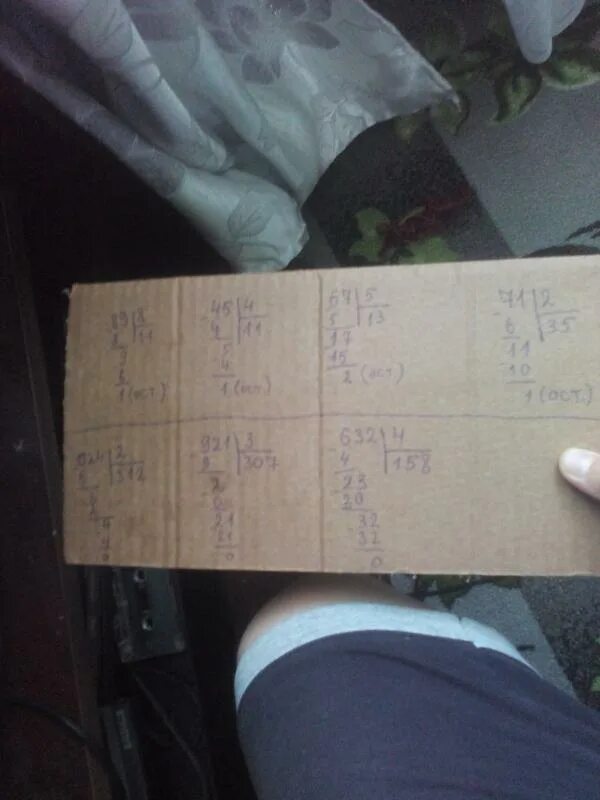 89 8
8 11
9
8
1 (ост.)
-45 4
4 11
5
4
1 (ост.)
67 5
5 13
17
15
2 (ост.)
-71 2
6 35
11
10
1 (ост.)
624 2
6 312
2
2
4
4
0
-921 3
9 307
2
-0
21
21
0
-632 4
4 158
-23
20
-32
32
0